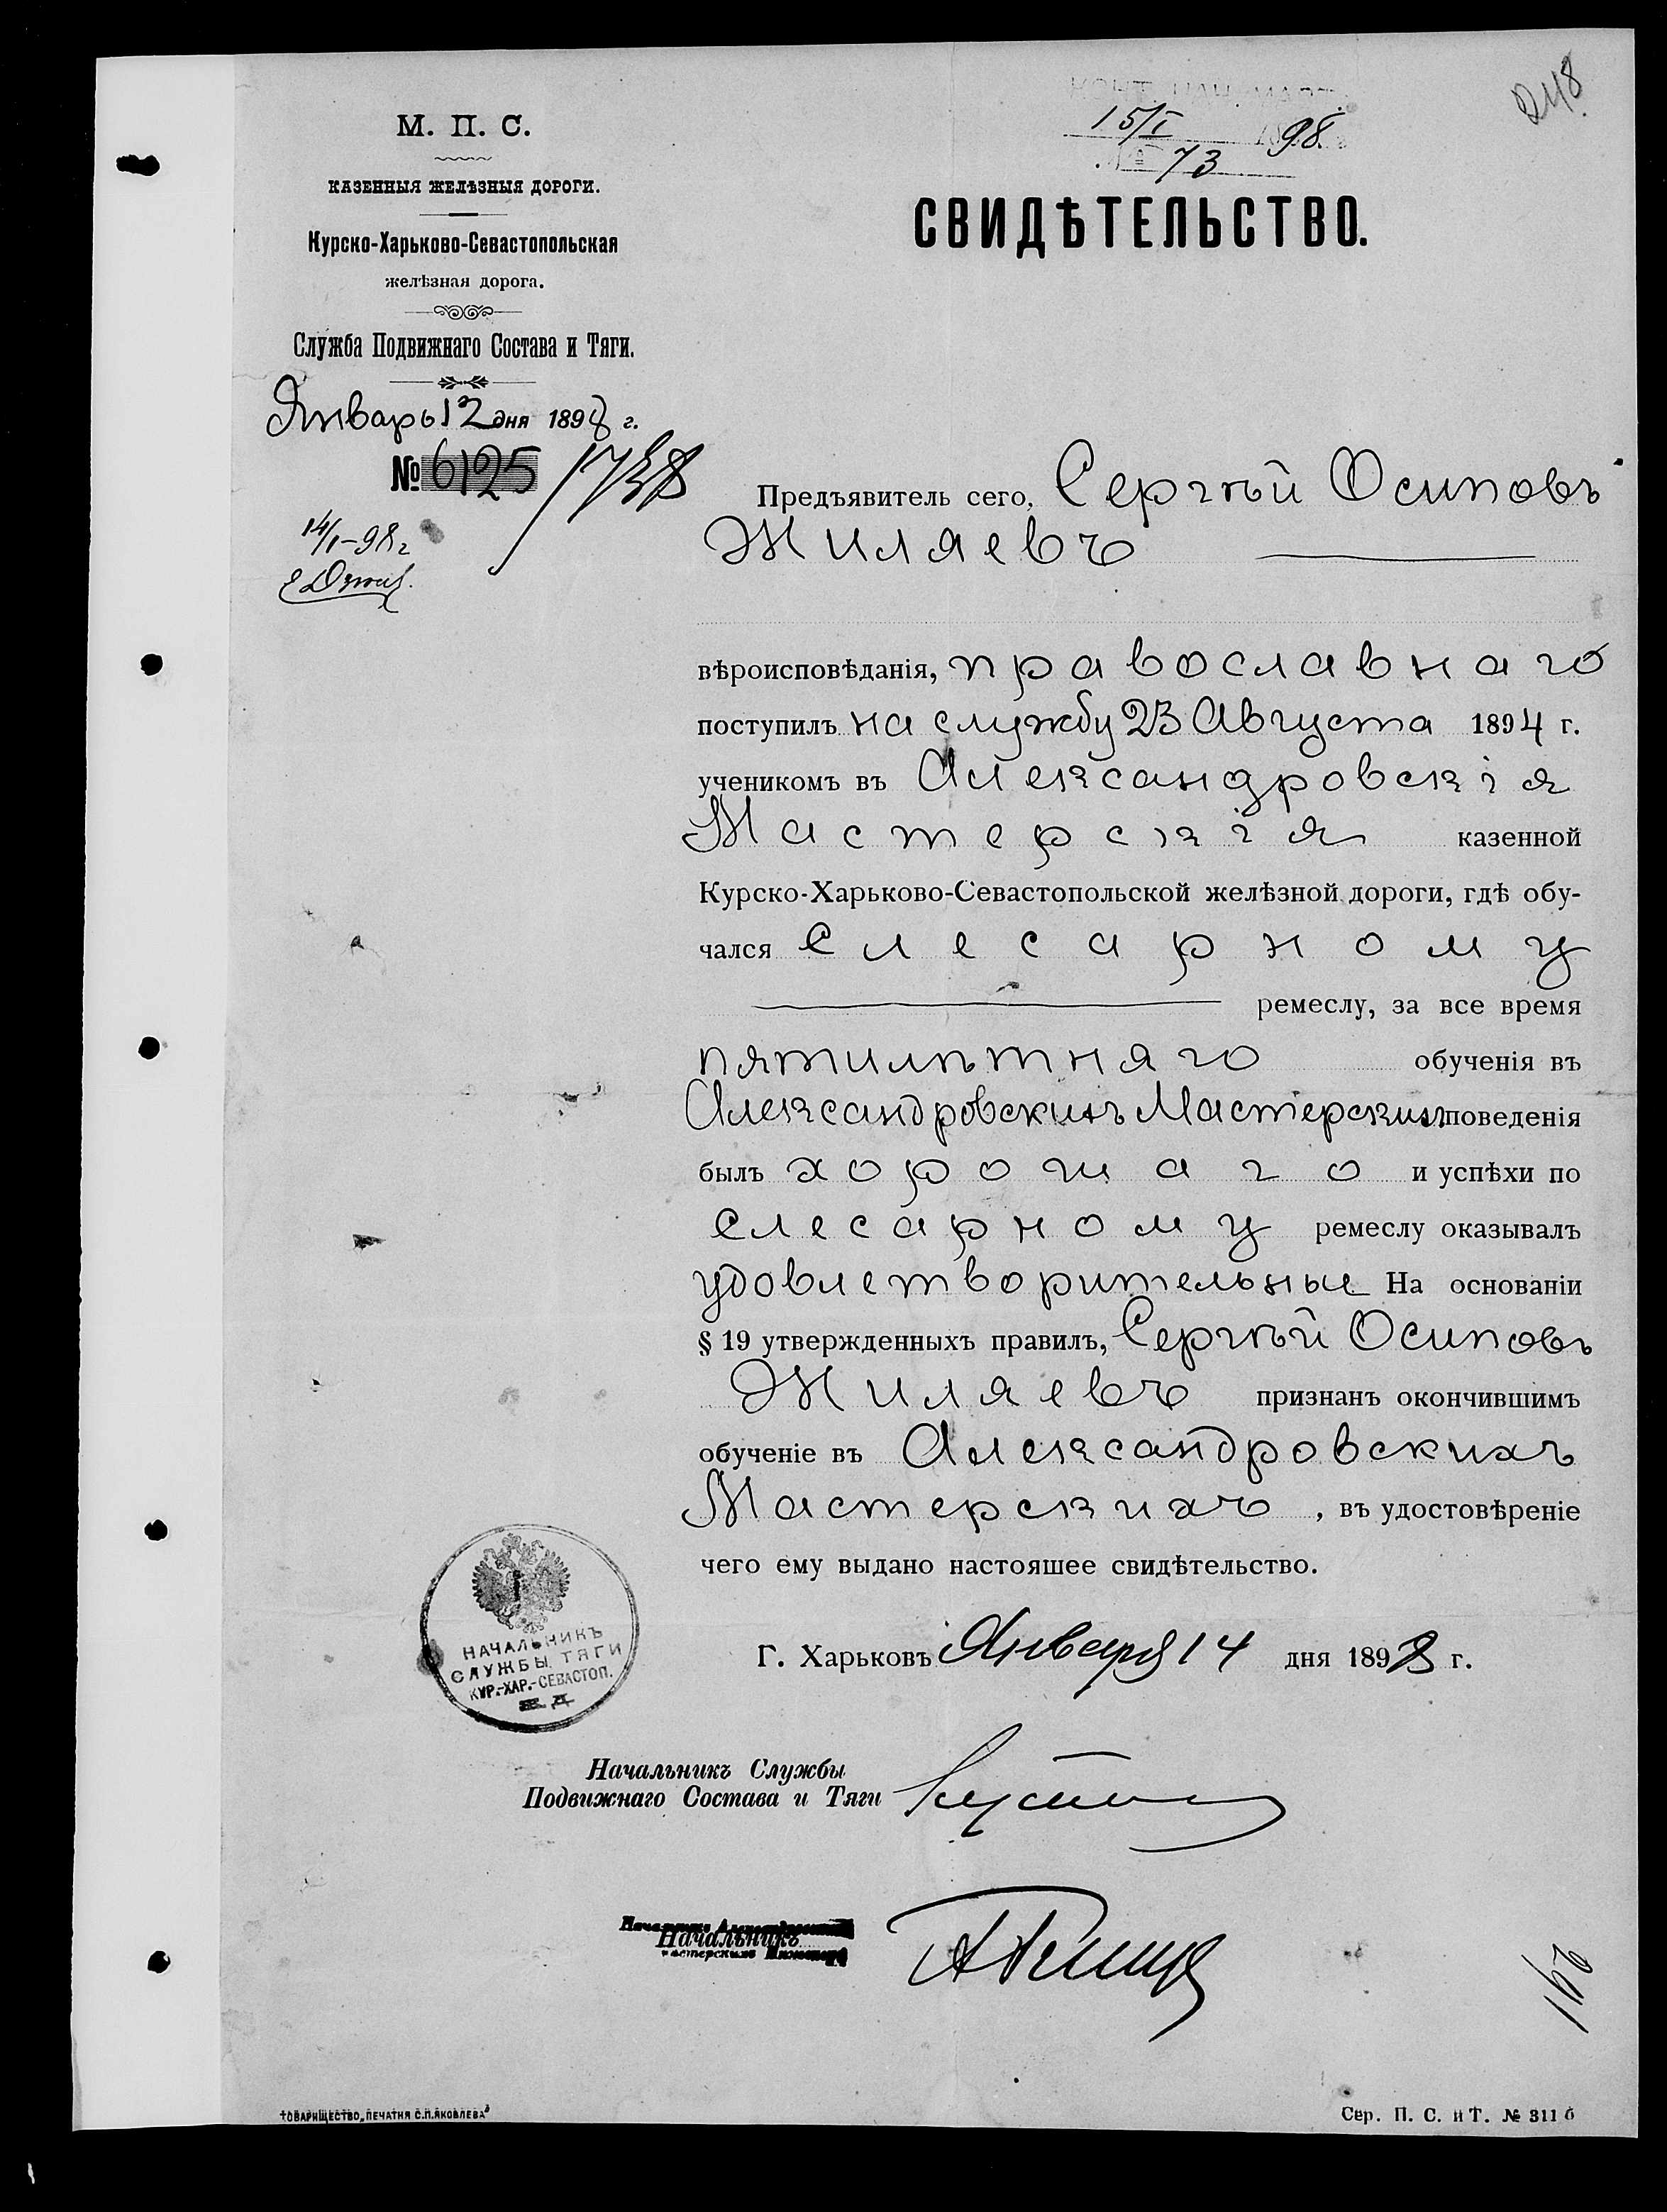 М. П. С.
КАЗЕННЫЯ ЖЕЛѢЗНЫЯ ДОРОГИ.
Курско-Харьково-Севастопольская
желѣзная дорога.
Служба Подвижнаго Состава и Тяги.
Январь 12 дня 1898 г.
№ 6125
14/I-98 г
15/I 98
№ 73
СВИДѢТЕЛЬСТВО.
Предъявитель сего, Сергѣй Осиповъ
Жиляевъ
вѣроисповѣданія, православнаго
поступилъ на службу 23 Августа 1894 г.
ученикомъ въ Александровскія
Мастерскія казенной
Курско-Харьково-Севастопольской желѣзной дороги, гдѣ обу-
чался слесарному
ремеслу, за все время
пятилѣтняго обученія въ
Александровскихъ Мастерскихъ поведенія
былъ хорошаго и успѣхи по
слесарному ремеслу оказывалъ
удовлетворительные На основаніи
§ 19 утвержденныхъ правилъ, Сергѣй Осиповъ
Жиляевъ признанъ окончившимъ
обученіе въ Александровскихъ
Мастерскихъ, въ удостовѣреніе
чего ему выдано настоящее свидѣтельство.
Г. Харьковъ Января 14 дня 1898 г.
НАЧАЛЬНИКЪ
СЛУЖБЫ ТЯГИ
КУР.-ХАР.-СЕВАСТОП.
Ж. Д.
Начальникъ Службы
Подвижнаго Состава и Тяги
Начальникъ
ТОВАРИЩЕСТВО „ПЕЧАТНЯ С.П. ЯКОВЛЕВА“
Сер. П. С. и Т. № 311 б